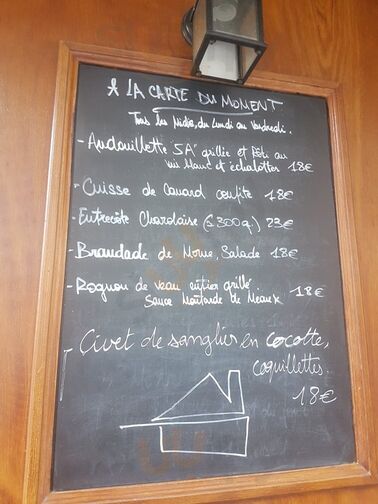 A LA CARTE DU MOMENT
Tous les Midis, du Lundi au Vendredi.
- Andouillette 5A grillée et Rôti au
vin blanc et échalottes 18€
- Cuisse de Canard confite 18€
- Entrecôte Charolaise (≤300g.) 23€
- Brandade de Morue, Salade 18€
- Rognon de veau entier grillé
Sauce Moutarde de Meaux 18€
- Civet de sanglier en cocotte,
coquillettes.
18€